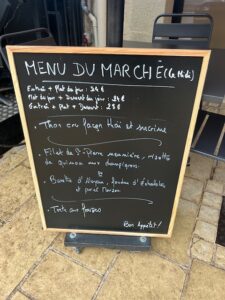 MENU DU MARCHÉ (Le Midi)
Entrée + Plat du jour : 24 €
Plat du jour + Dessert du jour : 24 €
Entrée + Plat + Dessert : 29 €
. Thon cru façon thaï et sucrine
. Filet de St Pierre meunière, risotto
de quinoa aux champignons
. d'Agneau, d'Échalotes
et purée Maison
. Tarte aux fraises
Bon Appétit !